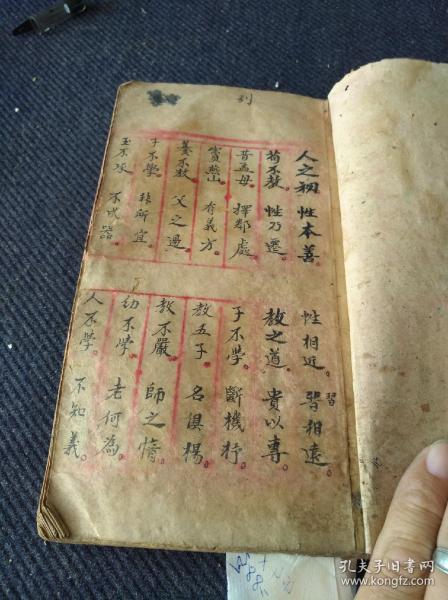 人之初 性本善。 性相近。 習相遠。
習
苟不教。 性乃遷。 教之道。 貴以專。
昔孟母。 擇鄰處。 子不學。 斷機杼。
竇燕山 有義方。 教五子 名俱揚。
養不教 父之過 教不嚴。 師之惰。
子不學。 非所宜 幼不學。 老何為。
玉不琢 不成器。 人不學。 不知義。
孔夫子旧书网
www.kongfz.com